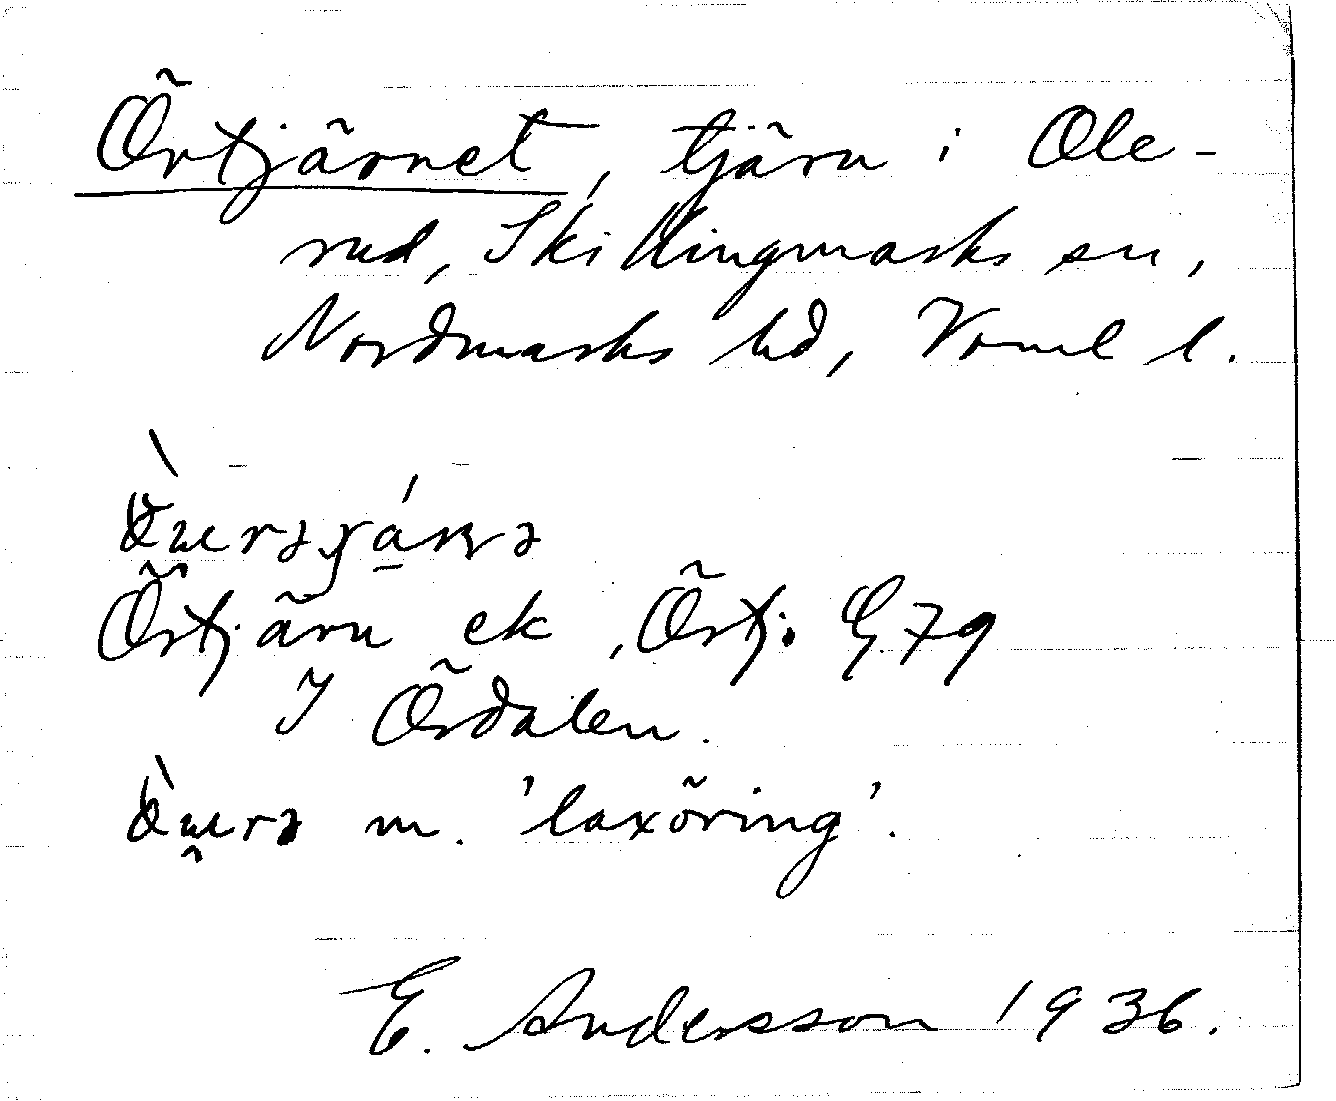 Örtjärnet, tjärn i Ole-
rud, Skillingmarks sn,
Nordmarks hd, Vrml l.
Örtjärn ek, Örtj. G79
I Ördalen.
m. 'laxöring'.
E. Andersson 1936.